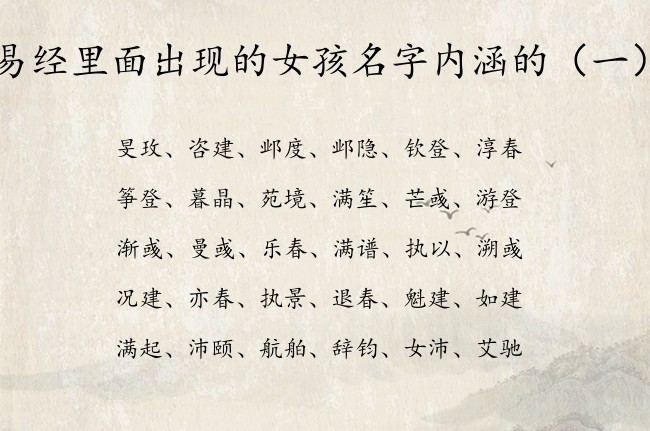 易经里面出现的女孩名字内涵的（一）
旻玫、咨建、邺度、邺隐、钦登、淳春
筝登、暮晶、苑境、满笙、芒彧、游登
渐彧、曼彧、乐春、满谱、执以、溯彧
况建、亦春、执景、退春、魁建、如建
满起、沛颐、航舶、辞钧、女沛、艾驰